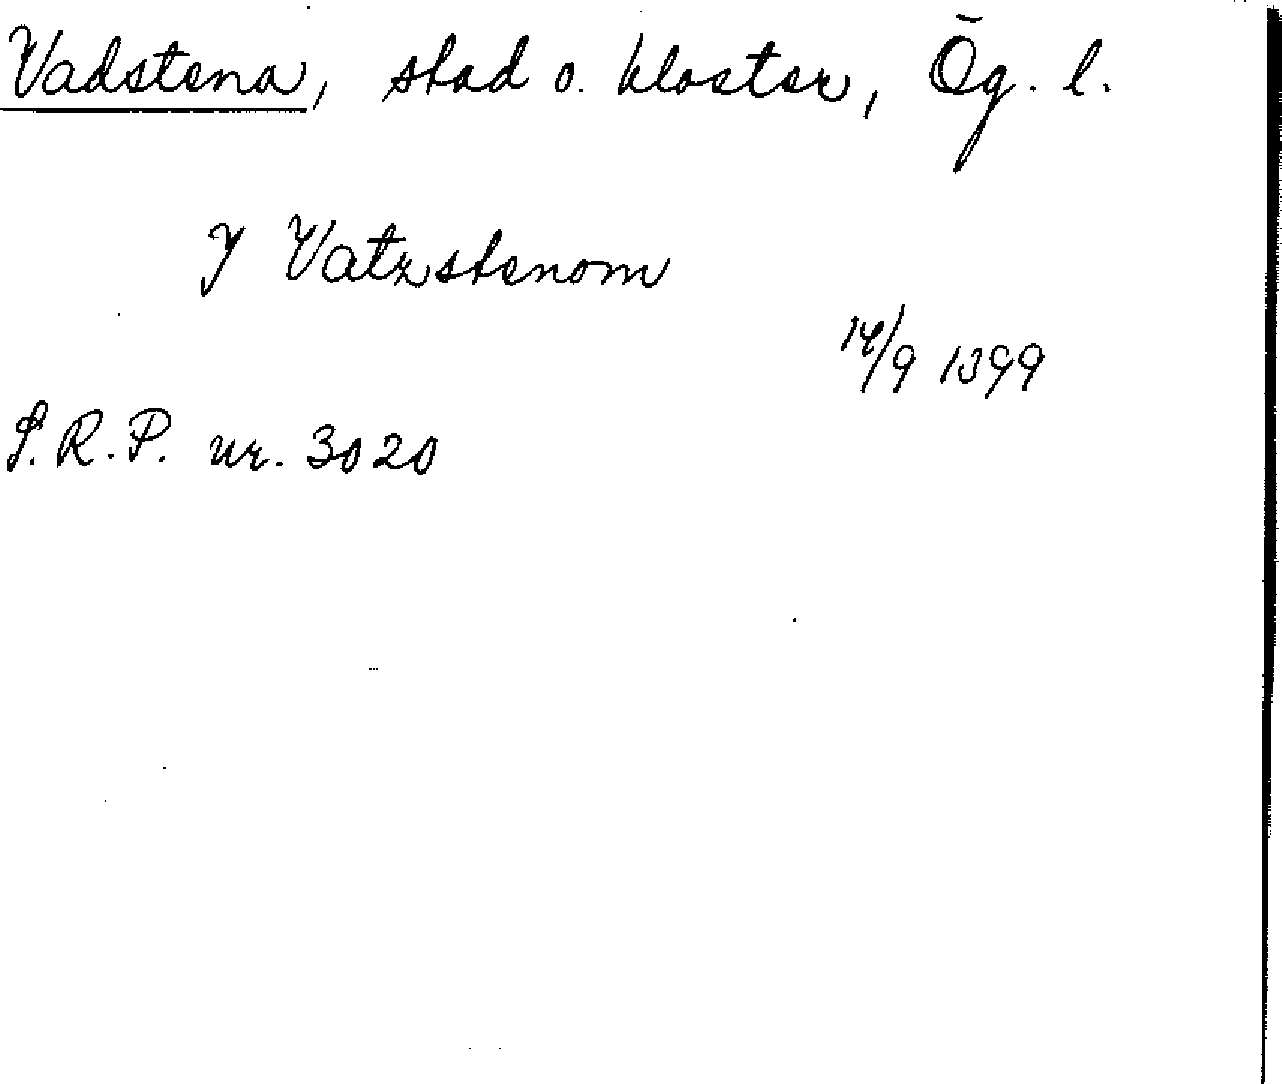 Vadstena, stad o. kloster, Ög. l.
J Vatzstenom
14/9 1399
S.R.P. nr. 3020